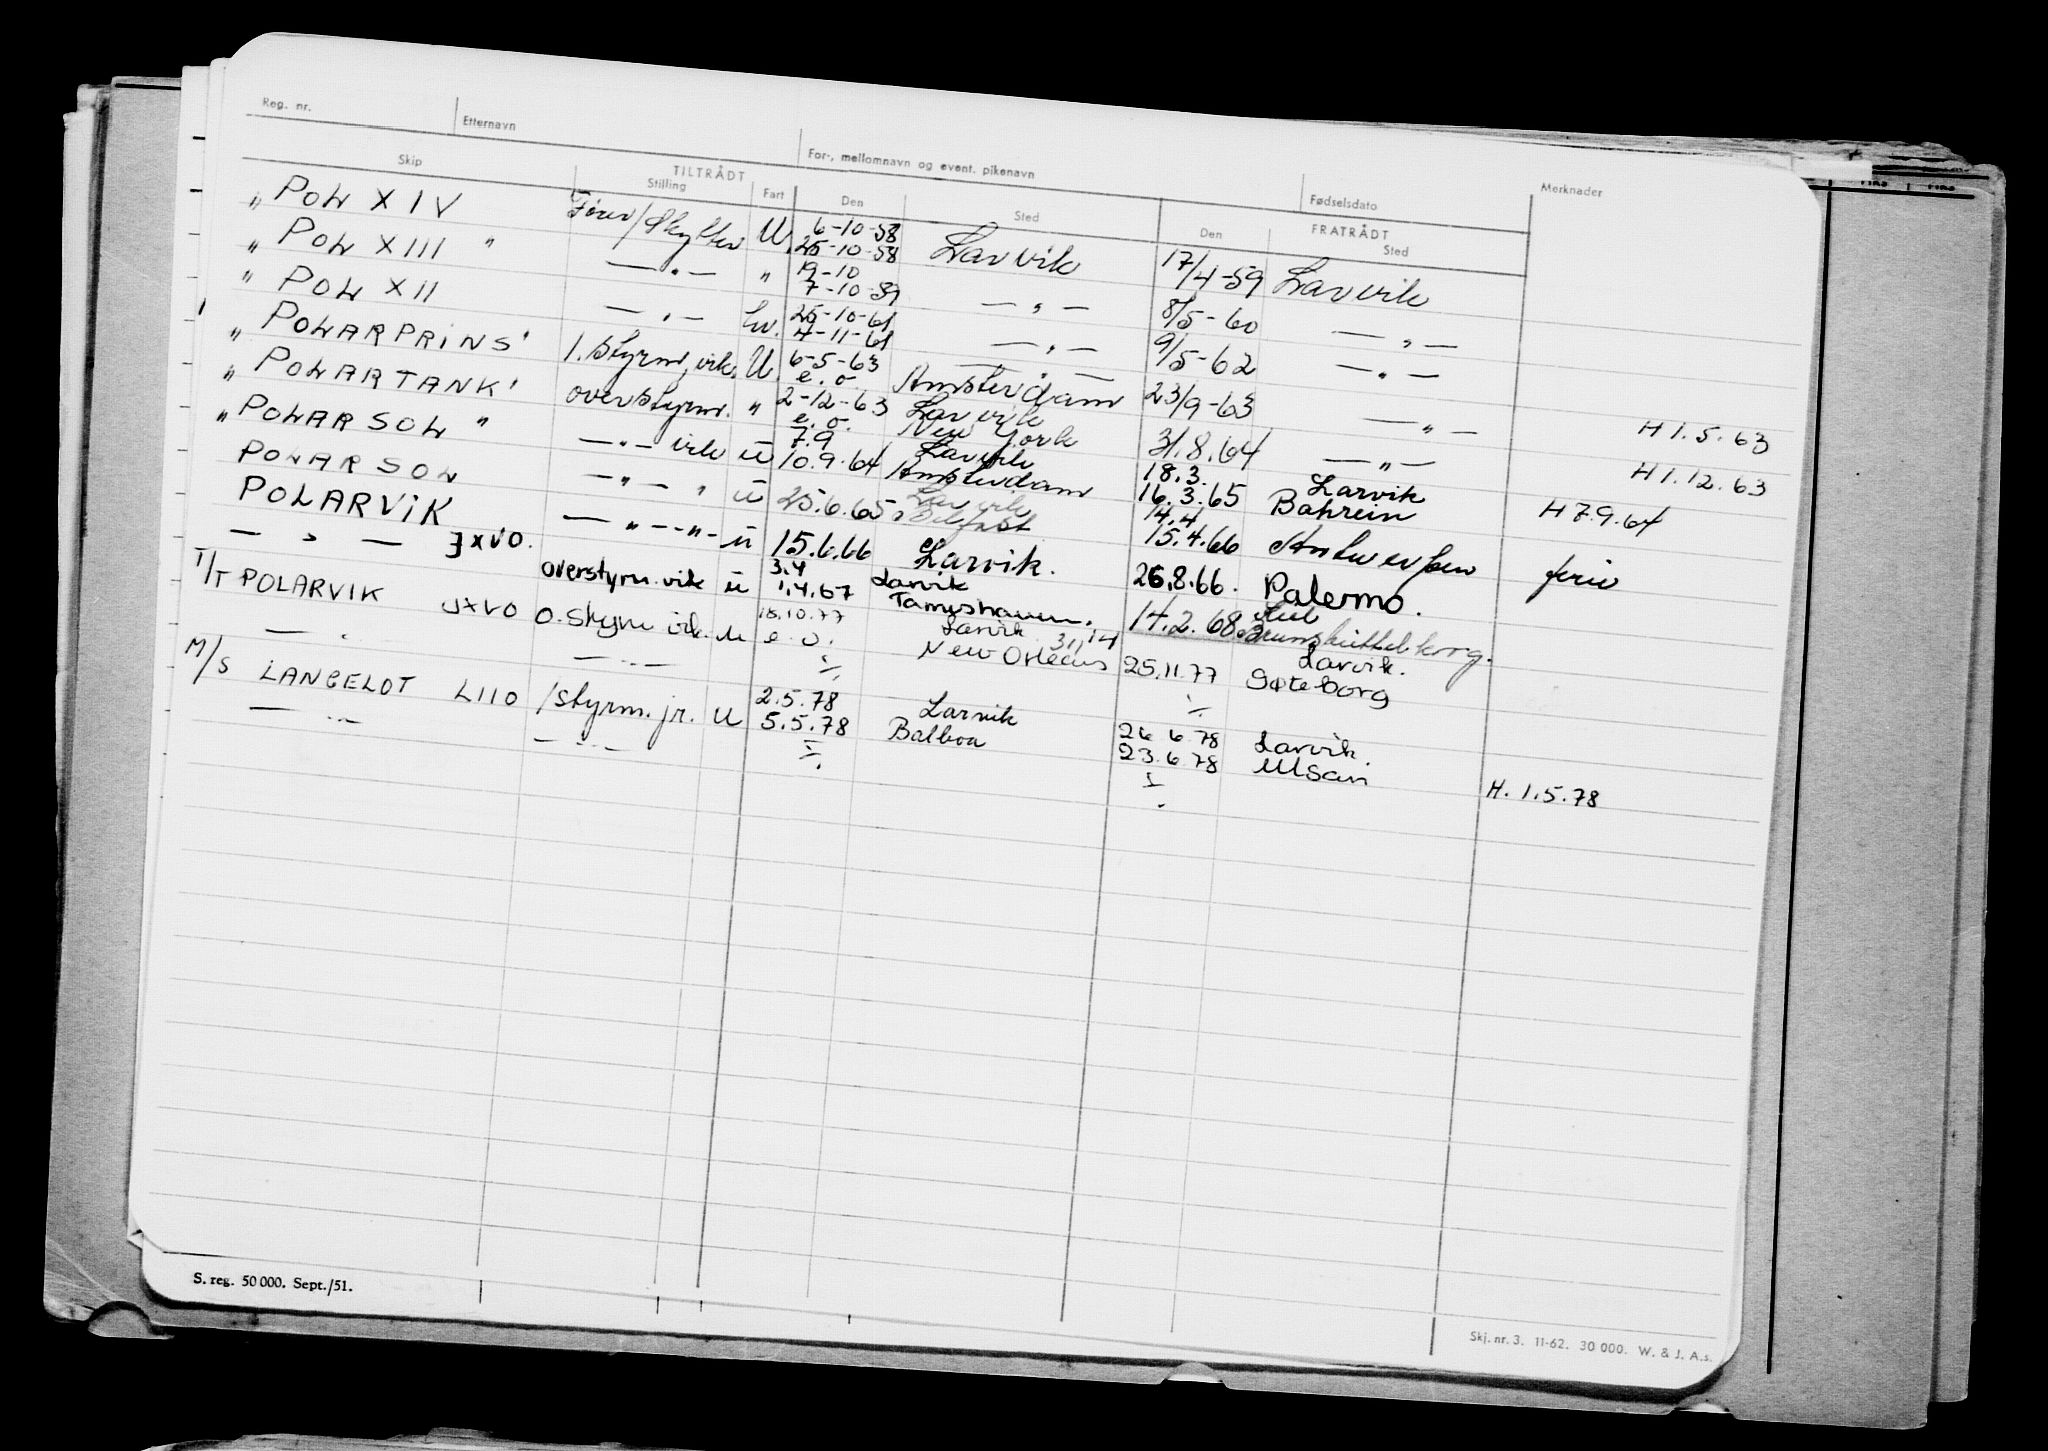 Reg. nr. Etternavn For-, mellomnavn og event. pikenavn Fødselsdato Merknader
Skip TILTRÅDT FRATRÅDT
Stilling Fart Den Sted Den Sted
„ POL XIV Fører/Skytter U. 6-10-58 Larvik 17/4-59 Larvik
25-10-58
„ POL XIII " — „ — „ 19-10 — „ — 8/5-60 — „ —
7-10-59
„ POL XII — „ — hv. 25-10-61 — „ — 9/5-62 — „ —
4-11-61
„ POLARPRINS' 1. styrm. vik. U. 6-5-63 — „ — 23/9-63 — „ — H 1.5.63
e.o. Amsterdam
„ POLARTANK' overstyrm. „ 2-12-63 Larvik 31.8.64 — „ — H 1.12.63
e.o. New York
„ POLARSOL " — „ — vik u 7.9 Larvik 18.3. Larvik H 7.9.64
10.9.64 Amsterdam 16.3.65 Bahrein
POLARSOL — „ — „ u 25.6.65 Larvik 14.4 Antwerpen ferie
Belfast 15.4.66
POLARVIK — „ — „ - u 15.6.66 Larvik. 26.8.66. Palermo.
— „ — JXVO. overstyrm. vik u 3.4 Larvik 14.2.68 Kiel
1.4.67 Tameshaven. Brunsbüttelkoog.
T/T POLARVIK JXVO O. styrm vik. u 18.10.77 Larvik 31/14 Larvik.
e.o. New Orleans 25.11.77 Gøteborg
— „ — — „ —
M/S LANCELOT LIIO 1styrm. jr. U 2.5.78 Larvik 26 6.78 Larvik. H. 1.5.78
5.5.78 Balboa 23.6.78 Ulsan
— „ — — „ —
S. reg. 50 000. Sept./51.
Skj. nr. 3. 11-62. 30 000. W. & J. A.s.